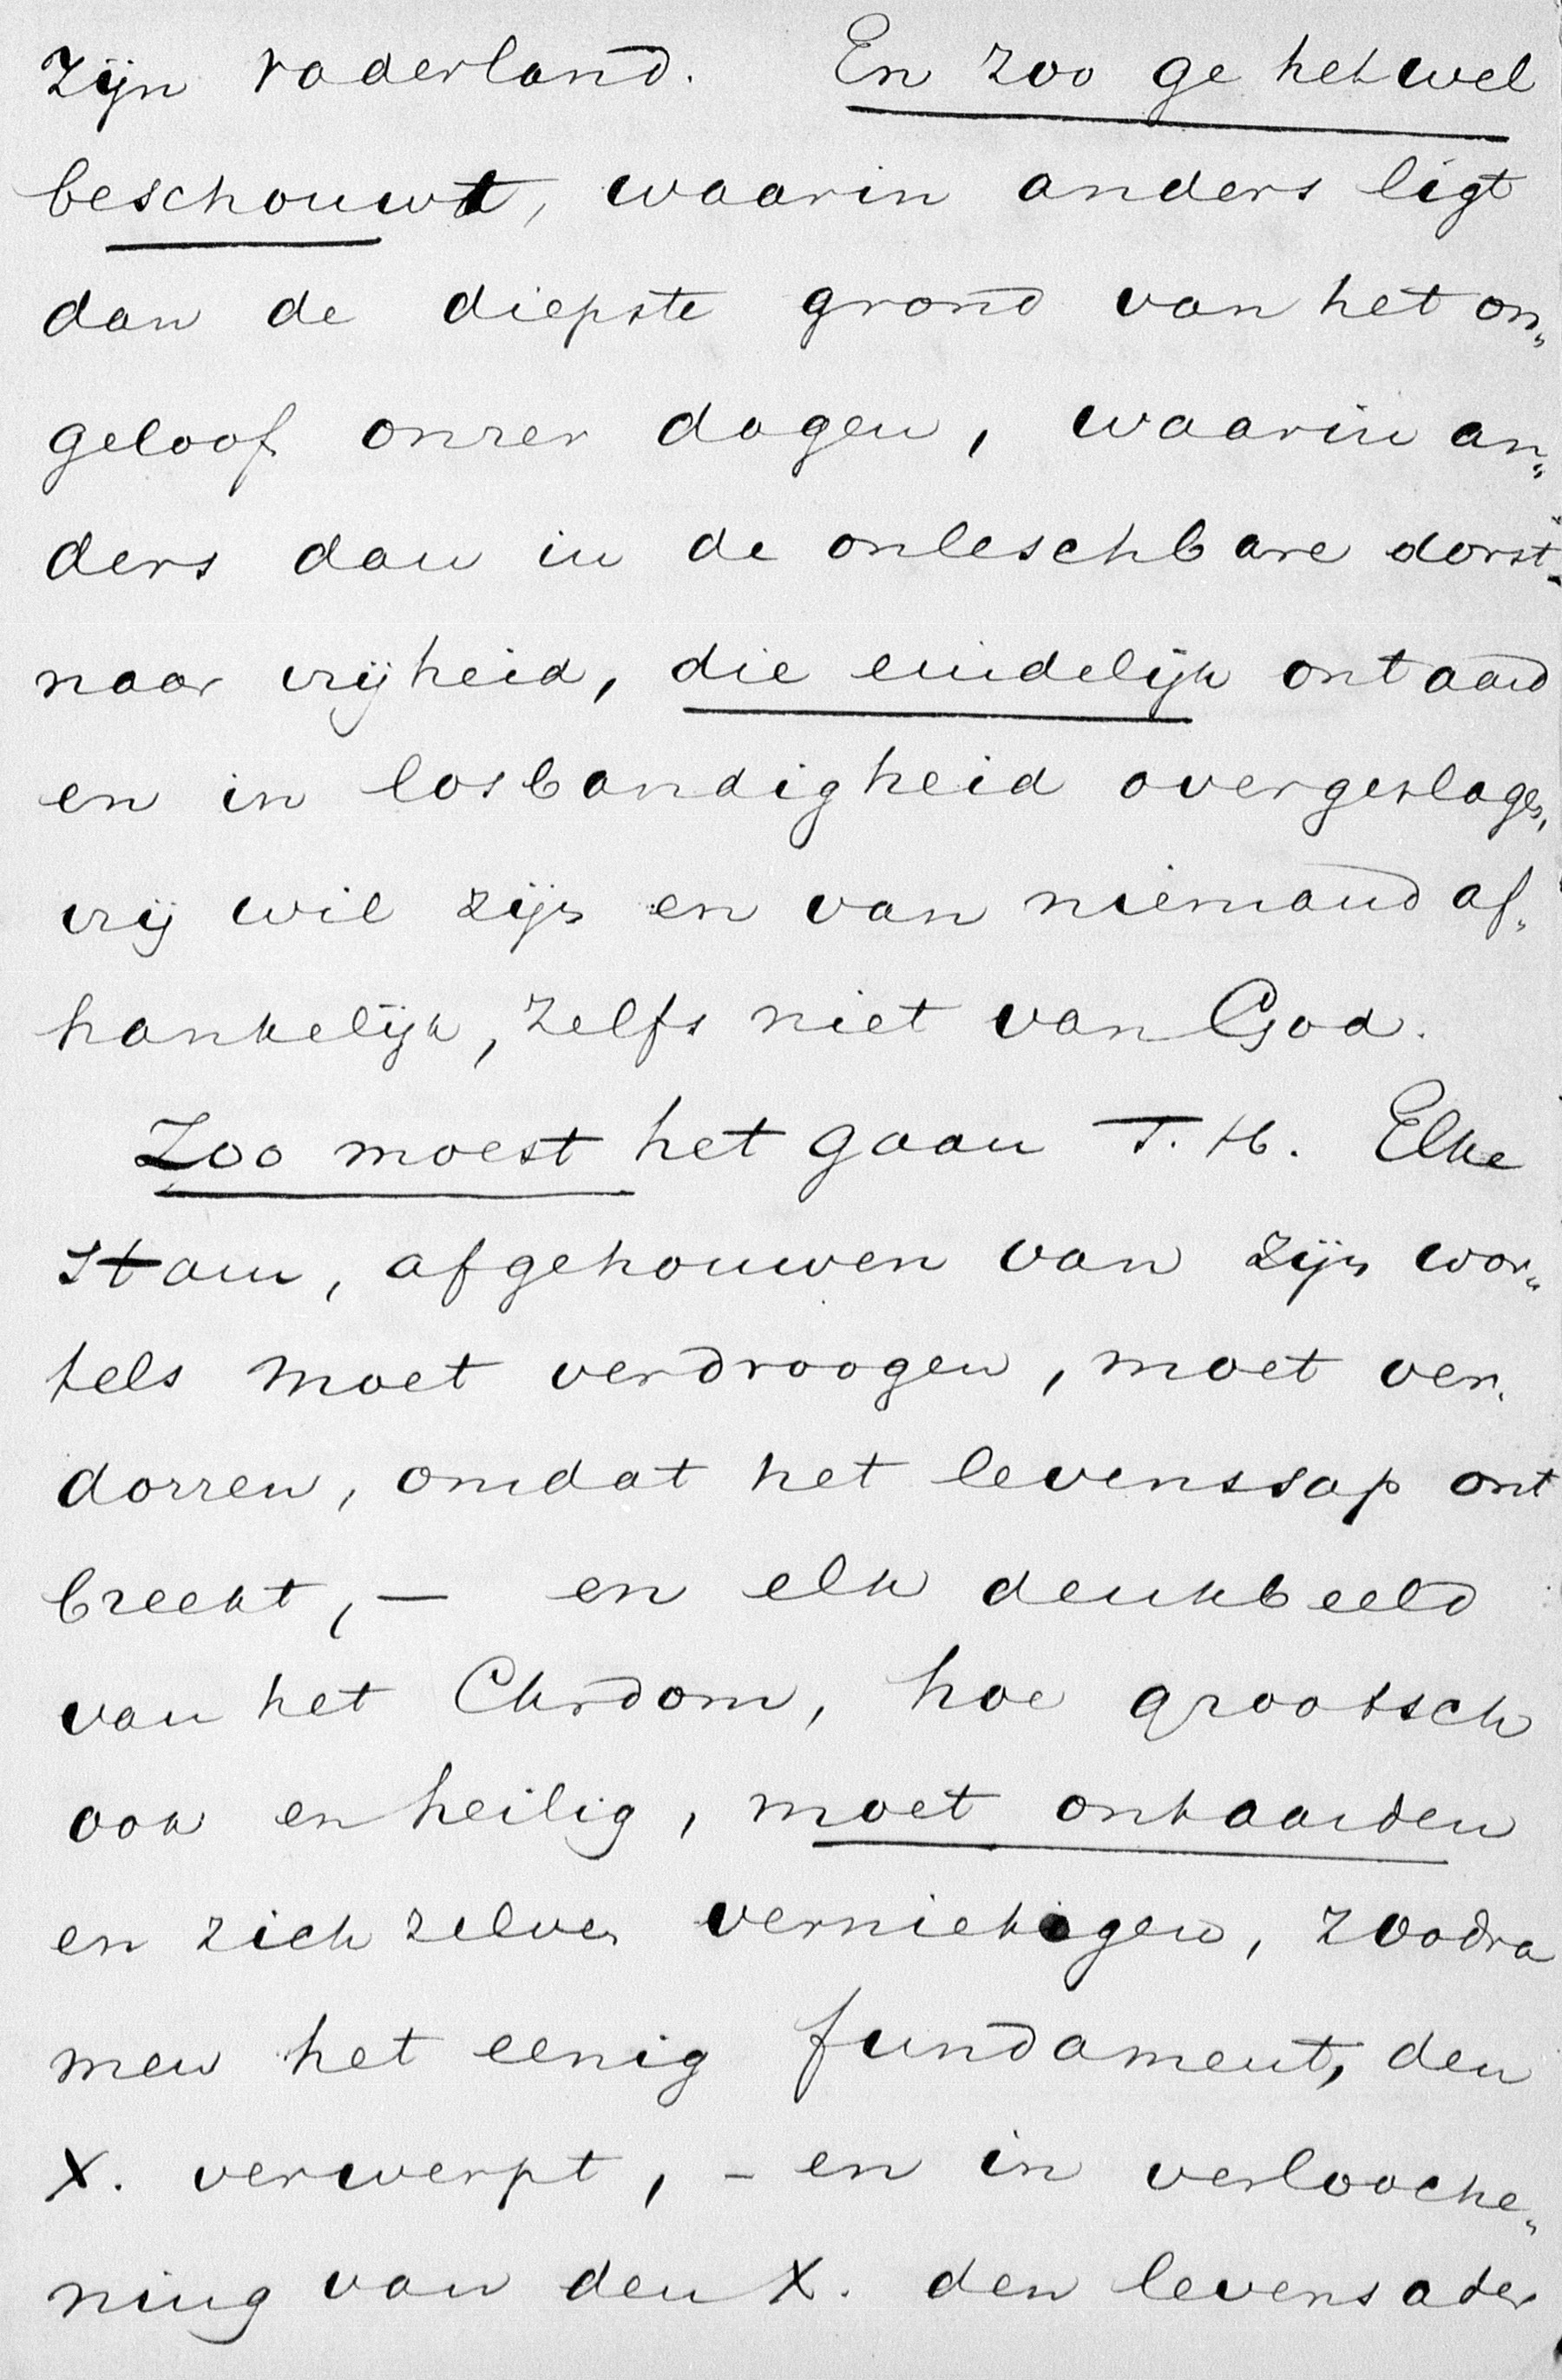 zijn vaderland. En zoo ge het wel
beschouwt, waarin anders ligt
dan de diepste grond van het on„
geloof onzer dagen, waarin an„
ders dan in de onleschbare dorst
naar vrijheid, die eindelijk ontaard
en in losbandigheid overgeslagen,
vrij wil zijn en van niemand af„
hankelijk, zelfs niet van God.
Zoo moest het gaan T. H. Elke
stam, afgehouwen van zijn wor„
tels moet verdroogen, moet ver„
dorren, omdat het levenssap ont
breekt, — en elk denkbeeld
van het Chrdom, hoe grootsch
ook en heilig, moet ontaarden
en zich zelven vernietigen, zoodra
men het eenig fundament, den
X. verwerpt, – en in verlooche„
ning van den X. den levensader